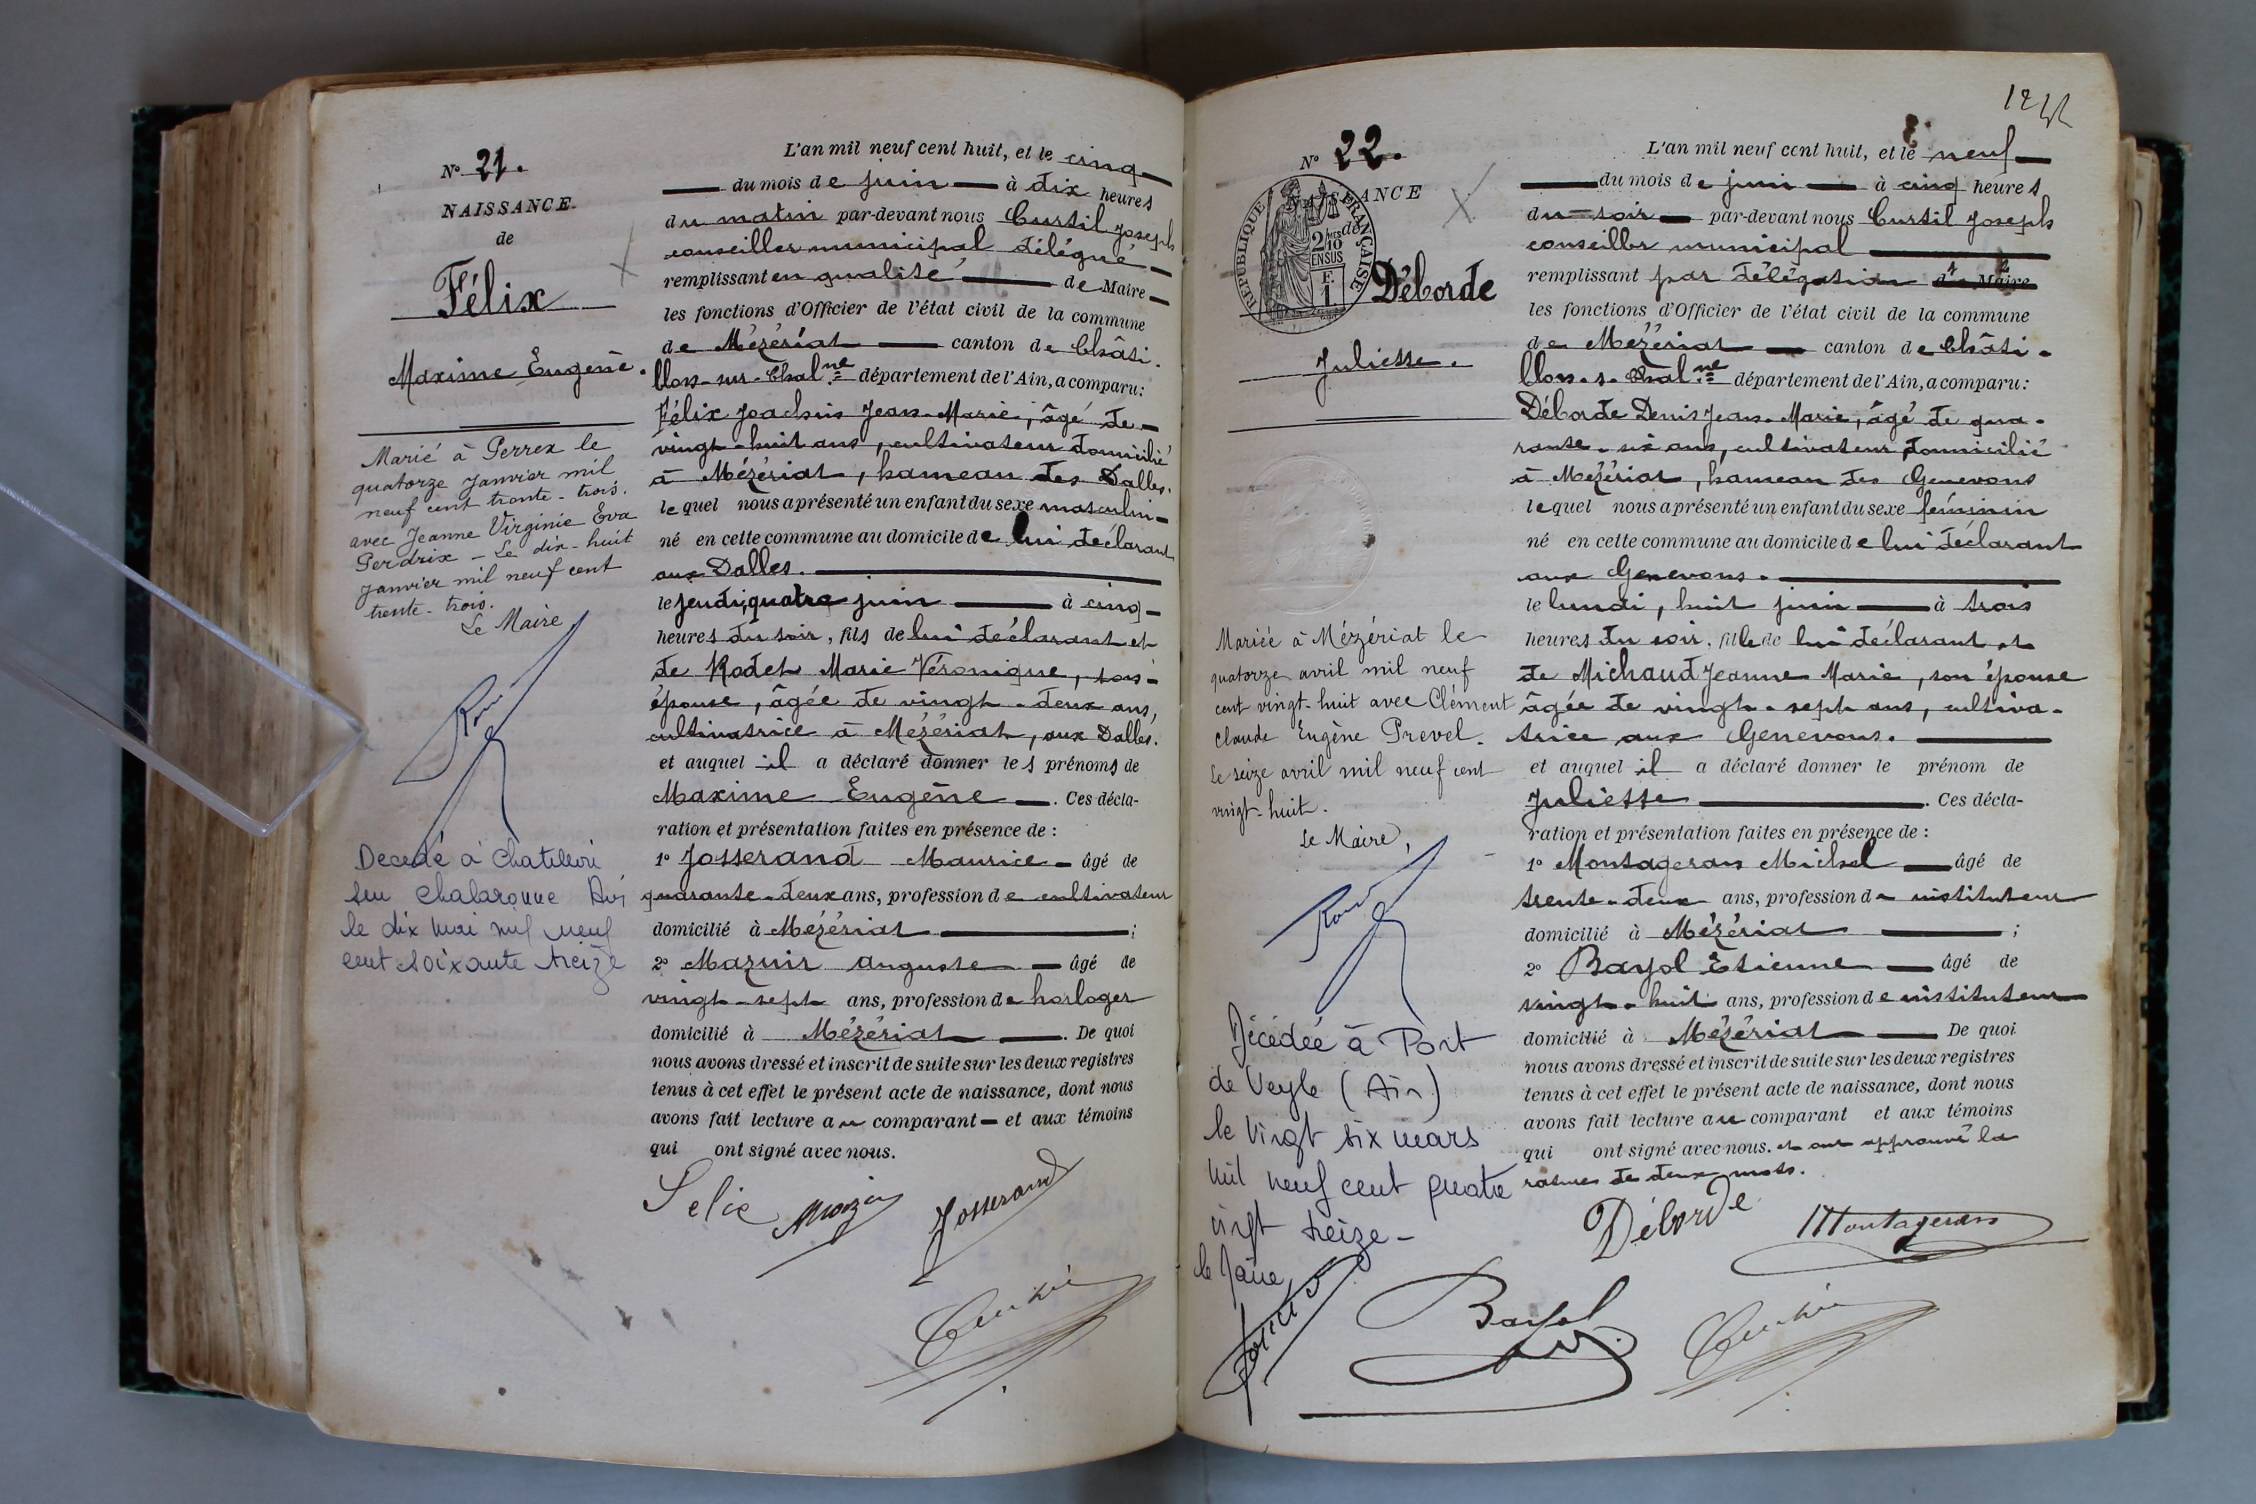 Nº 21.
NAISSANCE
de
Félix
Maxime Eugène.
Marié à Perrex le
quatorze janvier mil
neuf cent trente-trois.
avec Jeanne Virginie Eva
Perdrix - Le dix-huit
janvier mil neuf cent
trente-trois.
Le Maire,
Decedé à Chatillon
sur Chalaronne Ain
le dix mai mil neuf
cent soixante treize
L'an mil neuf cent huit, et le cinq
du mois de juin à dix heures
du matin par-devant nous Curtil Joseph
conseiller municipal délégué
remplissant en qualité de Maire
les fonctions d'Officier de l'état civil de la commune
de Mézériat canton de Châti-
llon-sur-Chalne département de l'Ain, a comparu:
Félix Joachin Jean-Marie, âgé de
vingt-huit ans, cultivateur domicilié
à Mézériat, hameau des Dalles.
lequel nous a présenté un enfant du sexe masculin
né en cette commune au domicile de lui déclarant
aux Dalles.
le jeudi, quatre juin à cinq
heures du soir, fils de lui déclarant et
de Rodet Marie Véronique, son
épouse, âgée de vingt-deux ans,
cultivatrice à Mézériat, aux Dalles.
et auquel il a déclaré donner les prénoms de
Maxime Eugène. Ces décla-
ration et présentation faites en présence de :
1º Josserand Maurice âgé de
quarante-deux ans, profession de cultivateur
domicilié à Mézériat ;
2º Mazuir Auguste âgé de
vingt-sept ans, profession de horloger
domicilié à Mézériat. De quoi
nous avons dressé et inscrit de suite sur les deux registres
tenus à cet effet le présent acte de naissance, dont nous
avons fait lecture au comparant et aux témoins
qui ont signé avec nous.
Felix Josserand
Nº 22.
NAISSANCE
de
RÉPUBLIQUE FRANÇAISE
2/10 MES
EN SUS
F.
1
Déborde
Juliette.
Mariée à Mézériat le
quatorze avril mil neuf
cent vingt-huit avec Clément
Claude Eugène Prevel.
Le seize avril mil neuf cent
vingt-huit.
Le Maire,
Décédée à Pont
de Veyle (Ain)
le vingt six mars
mil neuf cent quatre
vingt treize-
le Maire
L'an mil neuf cent huit, et le neuf
du mois de juin à cinq heures
du soir par-devant nous Curtil Joseph
conseiller municipal
remplissant par délégation de Maire
les fonctions d'Officier de l'état civil de la commune
de Mézériat canton de Châti-
llon-s-Chalne département de l'Ain, a comparu:
Déborde Denis Jean-Marie, âgé de qua-
rante-six ans, cultivateur domicilié
à Mézériat, hameau des Genevons
lequel nous a présenté un enfant du sexe féminin
né en cette commune au domicile de lui déclarant
aux Genevons.
le lundi, huit juin à trois
heures du soir, fille de lui déclarant et
de Michaud Jeanne Marie, son épouse
âgée de vingt-sept ans, cultiva-
trice aux Genevons.
et auquel il a déclaré donner le prénom de
Juliette. Ces décla-
ration et présentation faites en présence de :
1º Montageran Michel âgé de
trente-deux ans, profession de instituteur
domicilié à Mézériat ;
2º Bayol Etienne âgé de
vingt-huit ans, profession de instituteur
domicilié à Mézériat De quoi
nous avons dressé et inscrit de suite sur les deux registres
tenus à cet effet le présent acte de naissance, dont nous
avons fait lecture au comparant et aux témoins
qui ont signé avec nous. et ont approuvé la
rature de deux mots.
Déborde Montageran
Bayol